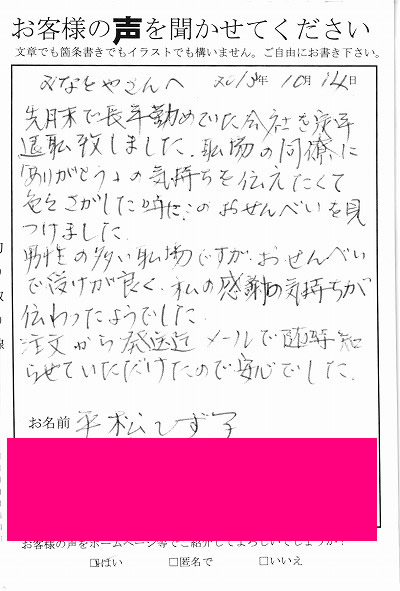 お客様の声を聞かせてください
文章でも箇条書きでもイラストでも構いません。ご自由にお書き下さい。
みなとやさんへ 2015年 10月 14日
先月末で長年勤めていた会社を定年
退職致しました。職場の同僚に
「ありがとう」の気持ちを伝えたくて
色々さがした時に、このおせんべいを見
つけました。
男性の多い職場ですが、おせんべい
で受けが良く、私の感謝の気持ちが
伝わったようでした。
注文から発送迄メールで随時知
らせていただけたので安心でした。
お名前 平松しず子
お客様の声をホームページ等でご紹介してよろしいでしょうか?
はい □匿名で □いいえ